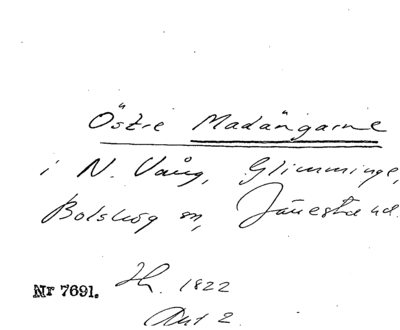 Östre Madängarne
i N. Vång, Glimminge,
Bolshög m,
Nr 7691. 1822
2